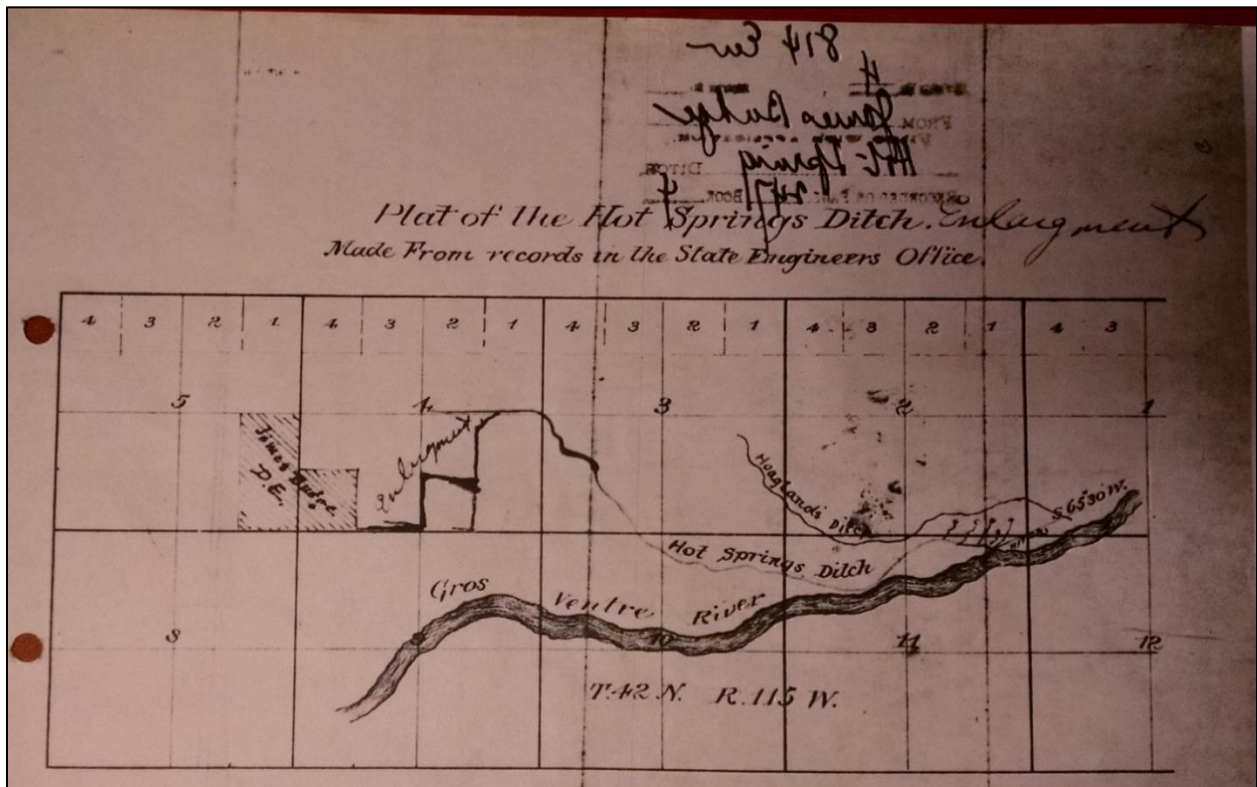 814 Enr
4
FROM James Budge
Hot Spring DITCH
RECORDED ON PAGE 247 BOOK 4
Plat of the Hot Springs Ditch. Enlargment
Made From records in the State Engineers Office.
4 3 2 1 4 3 2 1 4 3 2 1 4 3 2 1 4 3
5 4 3 2 1
James Budge
D.E.
Enlargment
Hoaglands Ditch
S 65°30' W.
Hot Springs Ditch
Gros Ventre River
8 10 11 12
T.42 N. R.115 W.